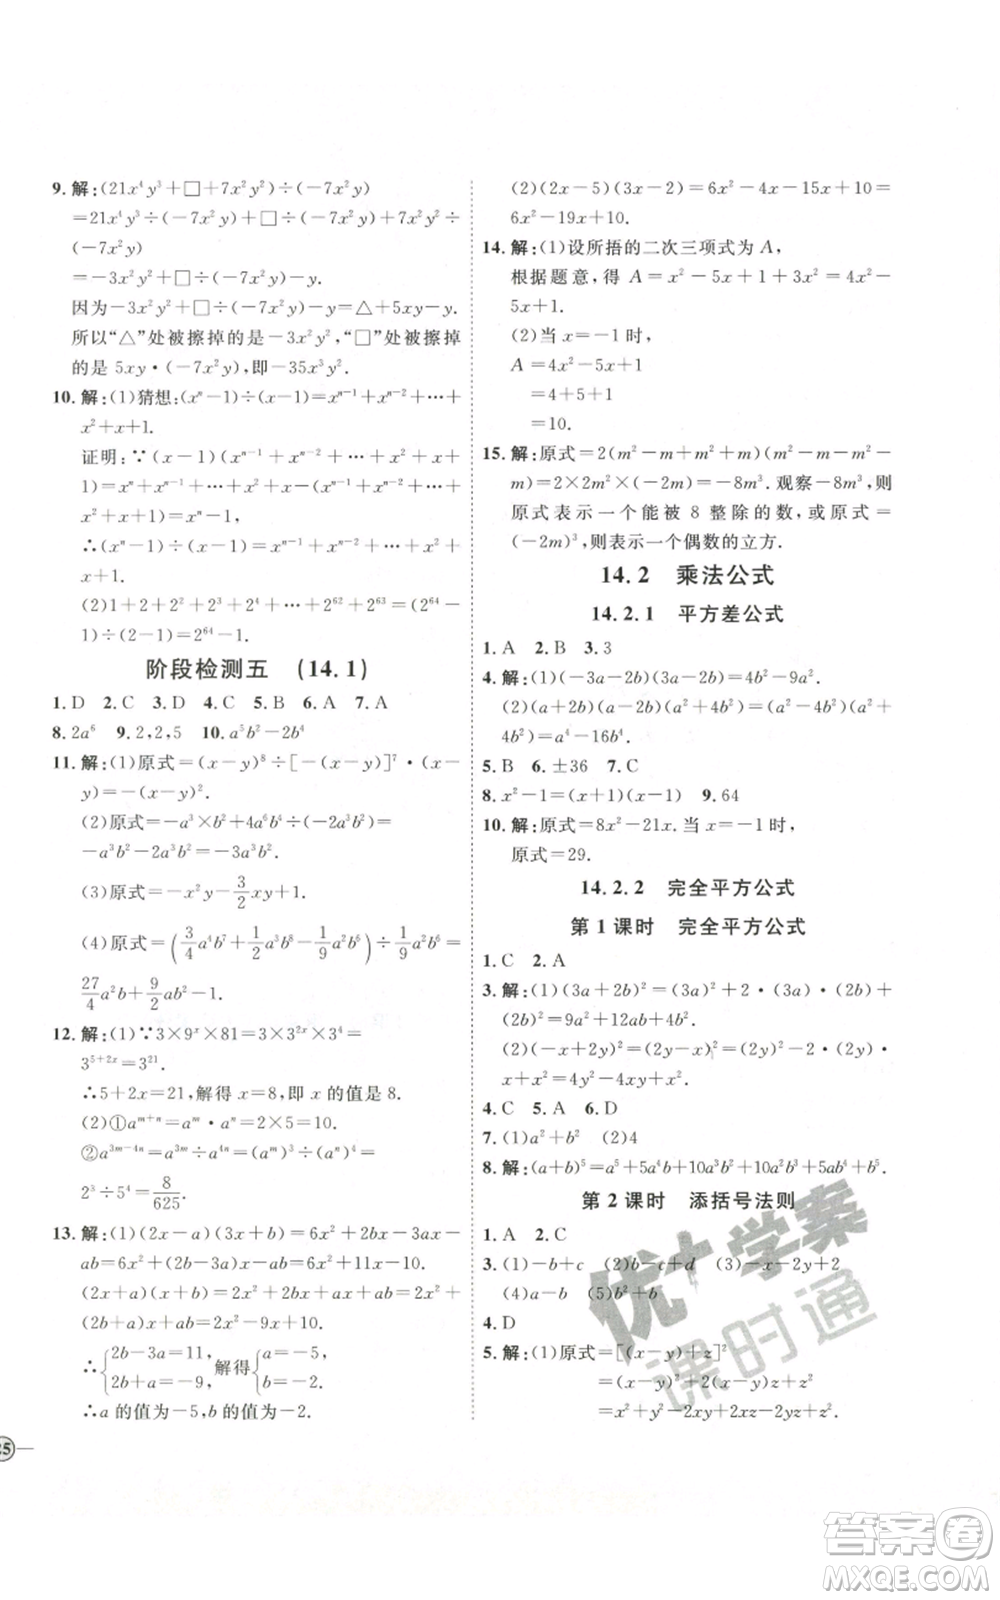 9. 解:(21x⁴y³+□+7x²y²)÷(-7x²y)
=21x⁴y³÷(-7x²y)+□÷(-7x²y)+7x²y²÷
(-7x²y)
=-3x²y²+□÷(-7x²y)-y.
因为-3x²y²+□÷(-7x²y)-y=△+5xy-y.
所以“△”处被擦掉的是-3x²y²,“□”处被擦掉
的是 5xy·(-7x²y),即-35x³y².
10. 解:(1)猜想:(xⁿ-1)÷(x-1)=xⁿ⁻¹+xⁿ⁻²+⋯+
x²+x+1.
证明:∵(x-1)(xⁿ⁻¹+xⁿ⁻²+⋯+
x²+x+1)=xⁿ-1,
∴(xⁿ-1)÷(x-1)=xⁿ⁻¹+xⁿ⁻²+⋯+
x²+x+1.
(2)1+2+2²+2³+⋯+2⁶²+2⁶³=(2⁶⁴-
1)÷(2-1)=2⁶⁴-1.
阶段检测五 (14.1)
1. D 2. C 3. D 4. C 5. B 6. A 7. A
8. 2a⁶ 9. 2,2,5 10. a⁵b²-2b⁴
11. 解:(1)原式=(x-y)⁸÷[-(x-y)]⁷·(x-
y)=-(x-y)².
(2)原式=-a³×b²+4a⁵b²÷(-4a²)=
-a³b²-a³b²=-2a³b².
(3)原式=-x²-3/2xy+1.
(4)原式=(3/4a⁴b⁷+1/2a³b⁸-1/9a²b⁶)÷1/9a²b⁶=
27/4a²b+9/2ab²-1.
12. 解:(1)∵3×9ˣ×81=3×3²ˣ×3⁴=
3⁵⁺²ˣ=3²¹.
∴5+2x=21,解得x=8,即x的值是8.
(2)①aᵐ⁺ⁿ=aᵐ·aⁿ=2×5=10.
②a³ᵐ⁻⁴ⁿ=a³ᵐ÷a⁴ⁿ=(aᵐ)³÷(aⁿ)⁴=
2³÷5⁴=8/625.
13. 解:(1)(2x-a)(3x+b)=6x²+2bx-3ax-
ab=6x²+(2b-3a)x-ab=6x²+11x-10.
(2x+a)(x+b)=2x²+2bx+ax+ab=
2x²+(2b+a)x+ab=2x²-9x+10.
∴{2b-3a=11, 2b+a=-9, 解得{a=-5, b=-2.
∴a 的值为-5,b 的值为-2.
25
(2)(2x-5)(3x-2)=6x²-4x-15x+10=
6x²-19x+10.
14. 解:(1)设所捂的二次三项式为 A,
根据题意,得 A=x²-5x+1+3x²=4x²-
5x+1.
(2)当 x=-1时,
A=4x²-5x+1
=4+5+1
=10.
15. 解:原式=2(m²-m+m²+m)(m²-m-m²-
m)=2×2m²×(-2m)=-8m³.观察-8m³,则
原式表示一个能被 8 整除的数,或原式=
(-2m)³,则表示一个偶数的立方.
14.2 乘法公式
14.2.1 平方差公式
1. A 2. B 3. 3
4. 解:(1)(-3a-2b)(3a-2b)=4b²-9a².
(2)(a+2b)(a-2b)(a²+4b²)=(a²-4b²)(a²+
4b²)=a⁴-16b⁴.
5. B 6. ±36 7. C
8. x²-1=(x+1)(x-1) 9. 64
10. 解:原式=8x²-21x.当x=-1时,
原式=29.
14.2.2 完全平方公式
第1课时 完全平方公式
1. C 2. A
3. 解:(1)(3a+2b)²=(3a)²+2·(3a)·(2b)+
(2b)²=9a²+12ab+4b².
(2)(-x+2y)²=(2y-x)²=(2y)²-2·(2y)·
x+x²=4y²-4xy+x².
4. C 5. A 6. D
7. (1)a²+b² (2)4
8. 解:(a+b)⁵=a⁵+5a⁴b+10a³b²+10a²b³+5ab⁴+b⁵.
第2课时 添括号法则
1. A 2. C
3. (1)-b+c (2)b-c+d (3)-x-2y+2
(4)a-b (5)2x²
4. D
5. 解:(1)原式=[(x-y)+z]²
=(x-y)²+2(x-y)z+z²
=x²+y²-2xy+2xz-2yz+z².
优+学案
课时通
答案卷
MXQE.COM